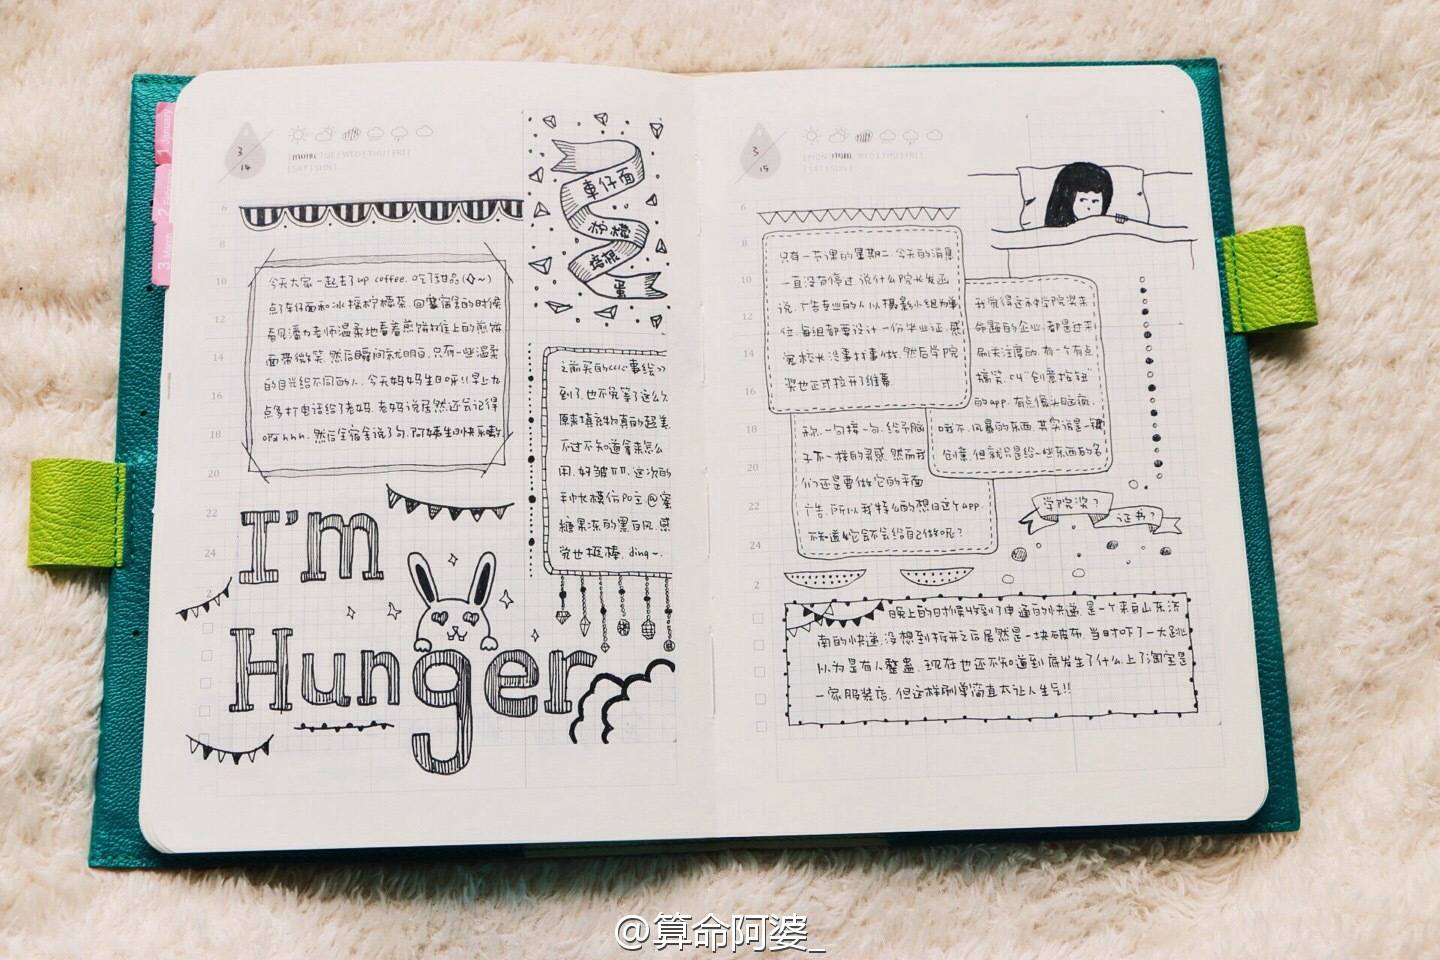 3
14
MON TUE WED THU FRI
SAT SUN
今天大家一起去了up coffee.吃了甜品(◇~)
点了车仔面和冰摇柠檬茶.回寝宿舍的时候
看见潘力老师温柔地看着煎饼摊上的煎饼
面带微笑.然后瞬间就明白.只有一些温柔
的目光给不同的人.今天妈妈生日呀!!早上九
点多打电话给了老妈.老妈说居然还会记得
啊hhh.然后全宿舍说了句.阿姨生日快乐
車仔面
柠檬
培根
蛋
之前买的《心事绘》
到了.也不免等了这么久
原来填充物真的超美
不过不知道拿来怎么
用.好皱TT.这次的
手帐模仿po主@蜜
糖果冻的黑白风.感
觉也挺棒.ding~.
I'm
Hunger
3
15
MON TUE WED THU FRI
SAT SUN
只有一节课的星期二.今天的消息
一直没有停过.说什么院长发函
说.广告专业的人以摄影小组为单
位.每组都要设计一份毕业证.感
觉校长没事找事做.然后学院
奖也正式拉开了维幕.
我觉得这种学院奖来
命题的企业.都是过来
刷关注度的.有一个有点
搞笑.叫“创意按钮”
的app.有点像头脑疯.
哦不.风暴的东西.其实说是一键
创意.但就只是给一些东西的名
称.一句接一句.给予脑
子不一样的灵感.然而我
们还是要做它的平面
广告.所以我特么的想日这个app.
不知道它会不会给自己做呢?
学院奖?
证书?
晚上的时候收到了申通的快递.是一个来自山东济
南的快递.没想到拆开之后居然是一块破布.当时吓了一大跳
以为是有人整蛊.现在也还不知道到底发生了什么.上了淘宝是
一家服装店.但这样刷单简直太让人生气!!
1 January
2
3 March
6
8
10
12
14
16
18
20
22
24
2
6
8
10
12
14
16
18
20
22
24
2
@算命阿婆_